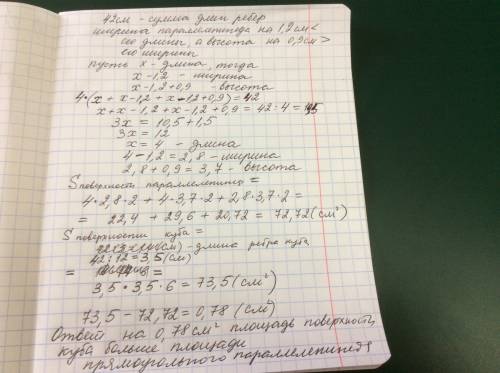 42см - сумма длин ребер
ширина параллелепипеда на 1,2см <
его длины, а высота на 0,9см >
его ширины
пусть x - длина, тогда
x-1,2 - ширина
x-1,2+0,9 - высота
4•(x + x-1,2 + x-1,2+0,9) = 42
x+x-1,2+x-1,2+0,9 = 42:4 =
3x = 10,5+1,5
3x = 12
x = 4 - длина
4-1,2 = 2,8 - ширина
2,8+0,9 = 3,7 - высота
S поверхности параллелепип =
4•2,8•2 + 4•3,7•2 + 2,8•3,7•2 =
= 22,4 + 29,6 + 20,72 = 72,72(см²)
S поверхности куба =
(см) - длина ребра куба
42:12 = 3,5(см)
=
3,5•3,5•6 = 73,5(см²)
73,5-72,72 = 0,78 (см)
Ответ на 0,78см² площадь поверхности
куба больше площади
прямоугольного параллелепипеда